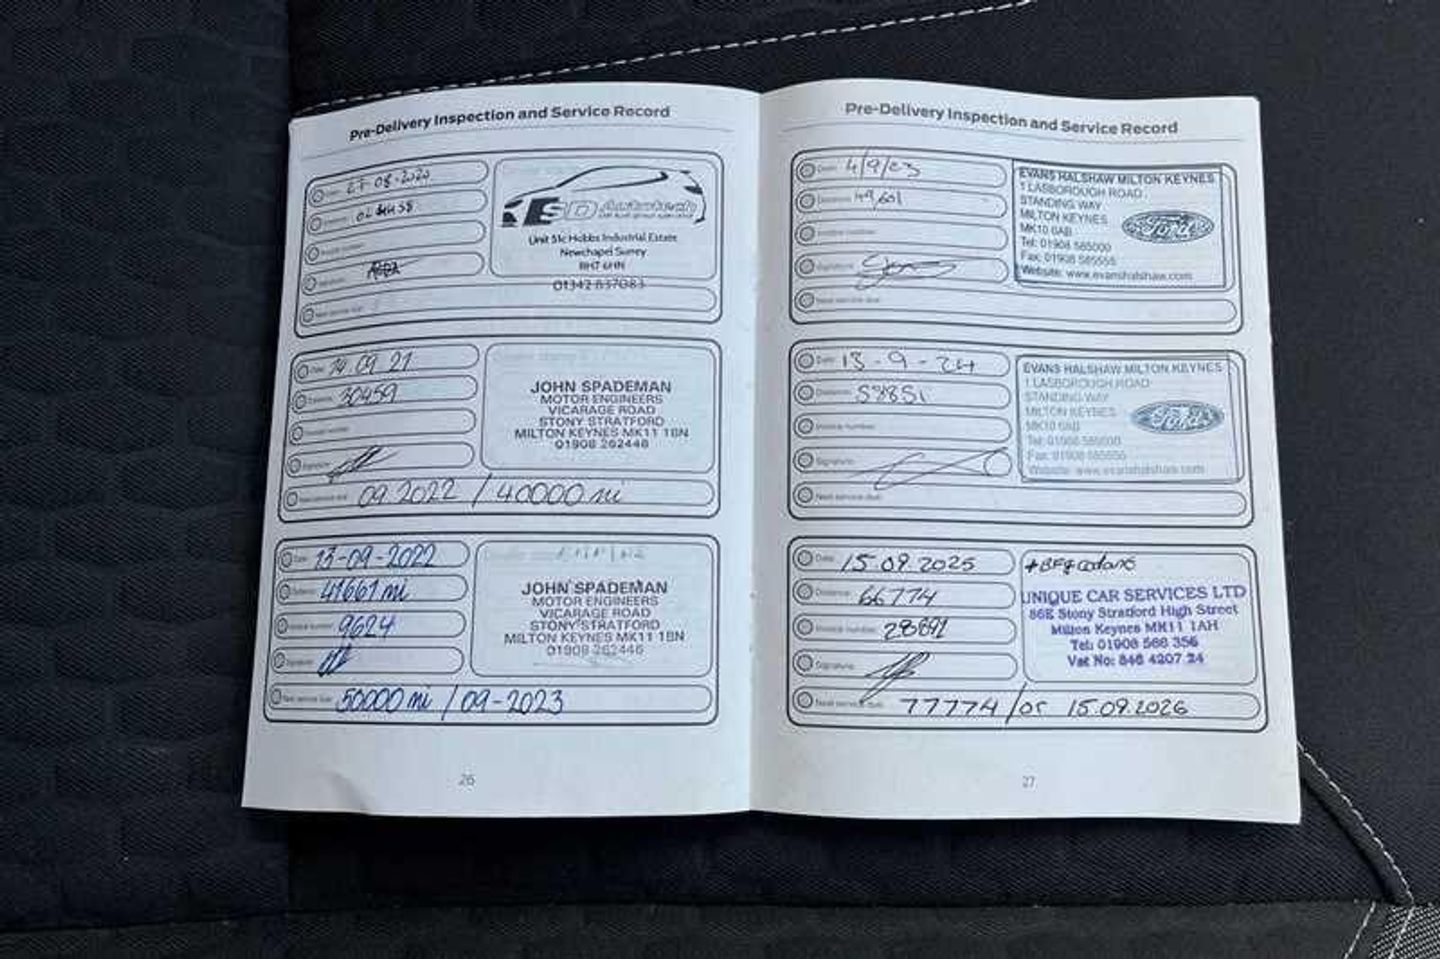 Pre-Delivery Inspection and Service Record
Date: 27-08-2020
SD Autotech
Unit 51c Hobbs Industrial Estate
Newchapel Surrey
RH7 6HN
01342 837083
Next service due:
Date: 14.09.21
30459
Signature:
Next service due: 09.2022 / 40000 mi
JOHN SPADEMAN
MOTOR ENGINEERS
VICARAGE ROAD
STONY STRATFORD
MILTON KEYNES MK11 1BN
01908 262446
Date: 13-09-2022
41661 mi
Invoice number: 9624
Signature:
Next service due: 50000 mi / 09-2023
JOHN SPADEMAN
MOTOR ENGINEERS
VICARAGE ROAD
STONY STRATFORD
MILTON KEYNES MK11 1BN
01908 262446
26
Pre-Delivery Inspection and Service Record
Date: 4/9/23
Distance: 49,601
Invoice number:
Signature:
Next service due:
EVANS HALSHAW MILTON KEYNES
1 LASBOROUGH ROAD
STANDING WAY
MILTON KEYNES
MK10 0AB
Tel: 01908 585000
Fax: 01908 585555
Website: www.evanshalshaw.com
Ford
Date: 13-9-24
Distance: 58851
Invoice number:
Signature:
Next service due:
EVANS HALSHAW MILTON KEYNES
1 LASBOROUGH ROAD
STANDING WAY
MILTON KEYNES
MK10 0AB
Tel: 01908 585000
Fax: 01908 585555
Website: www.evanshalshaw.com
Ford
Date: 15.09.2025
Distance: 66774
Invoice number: 28891
Signature:
Next service due: 77774 / or 15.09.2026
UNIQUE CAR SERVICES LTD
86E Stony Stratford High Street
Milton Keynes MK11 1AH
Tel: 01908 566 356
Vat No: 846 4207 24
27